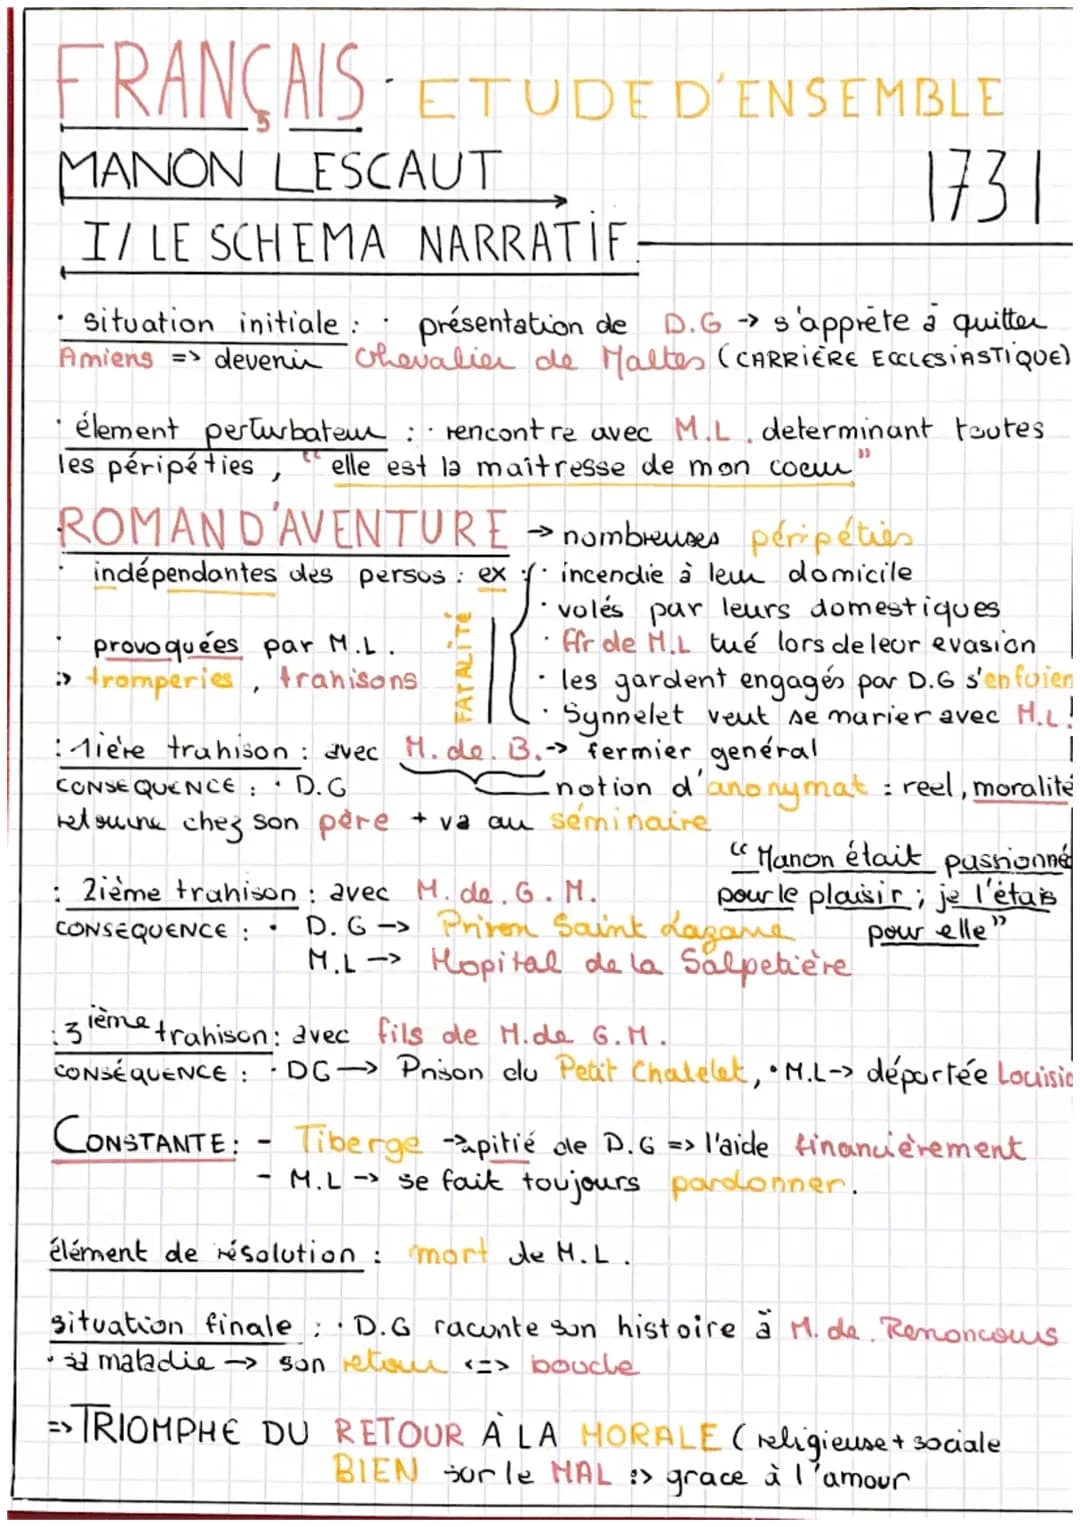 FRANÇAIS · ETUDE D'ENSEMBLE
MANON LESCAUT 1731
I/ LE SCHEMA NARRATIF
· situation initiale : · présentation de D.G -> s'apprête à quitter
Amiens => devenir Chevalier de Maltes (CARRIÈRE ECCLESIASTIQUE)
· élement perturbateur : · rencontre avec M.L. determinant toutes
les péripéties, "elle est la maîtresse de mon coeur"
ROMAN D'AVENTURE -> nombreuses péripéties
· indépendantes des persos : ex : · incendie à leur domicile
· volés par leurs domestiques
· provoquées par M.L. · frr de M.L tué lors de leur evasion
=> tromperies, trahisons FATALITÉ · les gardent engagés par D.G s'enfuien
· Synnelet veut se marier avec M.L!
: 1ière trahison : avec M. de. B. -> fermier general
CONSEQUENCE : · D.G notion d'anonymat : reel, moralité
retourne chez son père + va au séminaire
"Manon était passionné
: 2ième trahison : avec M. de. G. M. pour le plaisir ; je l'étais
CONSEQUENCE : · D. G -> Prison Saint Lazare pour elle"
M.L -> Hopital de la Salpetière
: 3ième trahison : avec fils de M.de G.M.
CONSÉQUENCE : · DG -> Prison du Petit Chatelet, · M.L -> déportée Louisia
CONSTANTE : - Tiberge -> apitié de D.G => l'aide financièrement
- M.L -> se fait toujours pardonner.
élément de résolution : mort de M.L.
situation finale : · D.G raconte son histoire à M. de. Renoncours
· sa maladie -> son retour <=> boucle
=> TRIOMPHE DU RETOUR À LA MORALE (religieuse + sociale
BIEN sur le MAL => grace à l'amour